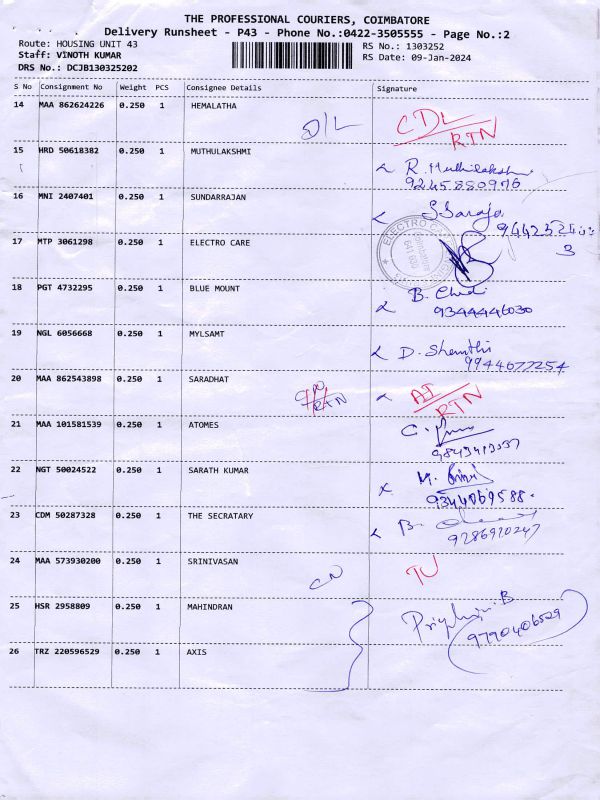 THE PROFESSIONAL COURIERS, COIMBATORE
Delivery Runsheet - P43 - Phone No.:0422-3505555 - Page No.:2
Route: HOUSING UNIT 43
Staff: VINOTH KUMAR
DRS No.: DCJB130325202
RS No.: 1303252
RS Date: 09-Jan-2024
S No Consignment No Weight PCS Consignee Details Signature
14 MAA 862624226 0.250 1 HEMALATHA D/L CDL
RTN
15 HRD 50618382 0.250 1 MUTHULAKSHMI R. Muthilakshmi
9245880976
16 MNI 2407401 0.250 1 SUNDARRAJAN
17 MTP 3061298 0.250 1 ELECTRO CARE
ELECTRO
18 PGT 4732295 0.250 1 BLUE MOUNT B.
9344446030
19 NGL 6056668 0.250 1 MYLSAMT D. Shanthi
9944677254
20 MAA 862543898 0.250 1 SARADHAT RTN AI
RTN
21 MAA 101581539 0.250 1 ATOMES C.
22 NGT 50024522 0.250 1 SARATH KUMAR M.
9344069588.
23 CDM 50287328 0.250 1 THE SECRATARY B.
9286920247
24 MAA 573930200 0.250 1 SRINIVASAN CN TU
25 HSR 2958809 0.250 1 MAHINDRAN
9790406529
26 TRZ 220596529 0.250 1 AXIS